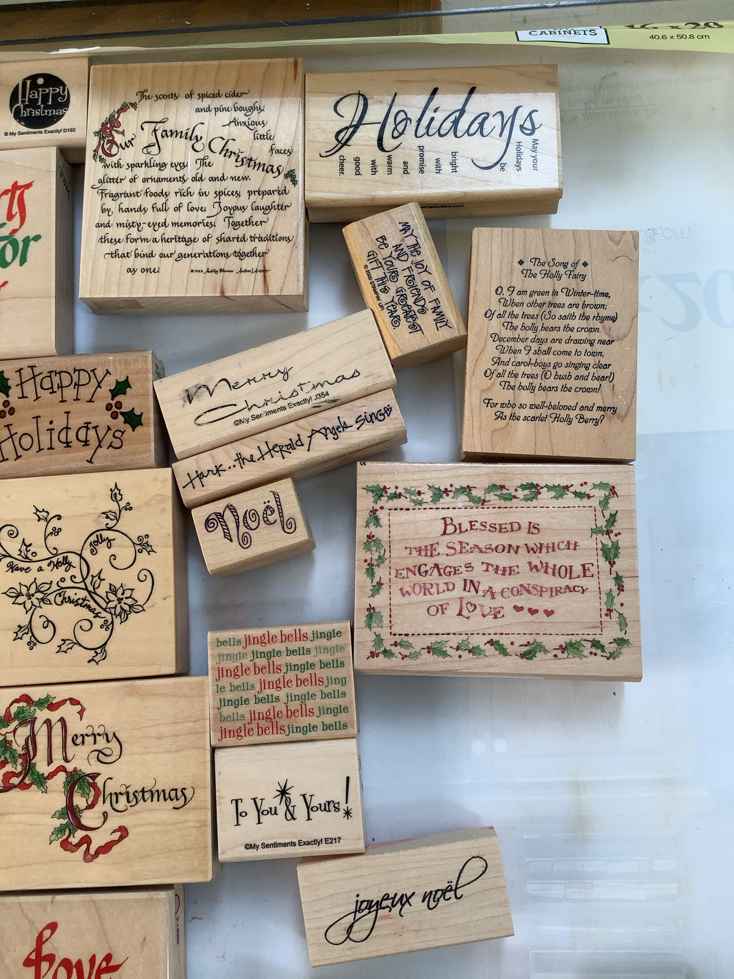 CABINETS
16 x 20
40.6 x 50.8 cm
Happy
Christmas
© My Sentiments Exactly! D102
The scents of spiced cider
and pine boughs,
Anxious
little
faces
Our Family Christmas
with sparkling eyes, The
glitter of ornaments old and new.
Fragrant foods rich in spices, prepared
by, hands full of love, Joyous laughter
and misty-eyed memories, Together
these form a heritage of shared traditions
that bind our generations together
as one.
Holidays
May your
Holidays
be
bright
with
promise
and
warm
with
good
cheer.
MAY THE JOY OF FAMILY
AND FRIENDS
BE YOUR GREATEST
GIFT THIS
YEAR.
❖ The Song of ❖
The Holly Fairy
O, I am green in Winter-time,
When other trees are brown;
Of all the trees (So saith the rhyme)
The holly bears the crown.
December days are drawing near
When I shall come to town,
And carol-boys go singing clear
Of all the trees (O hush and hear!)
The holly bears the crown!
For who so well-beloved and merry
As the scarlet Holly Berry?
or
Happy
Holidays
Merry
Christmas
©My Sentiments Exactly! J354
Hark...the Herald Angels Sing
Noël
Have a Holly
Jolly
Christmas
BLESSED IS
THE SEASON WHICH
ENGAGES THE WHOLE
WORLD IN A CONSPIRACY
OF LOVE ♥♥♥
bells jingle bells jingle
jingle jingle bells jingle
jingle bells jingle bells
le bells jingle bells jing
jingle bells jingle bells
bells jingle bells jingle
jingle bells jingle bells
Merry
Christmas
To You & Yours!
©My Sentiments Exactly! E217
joyeux noël
Love